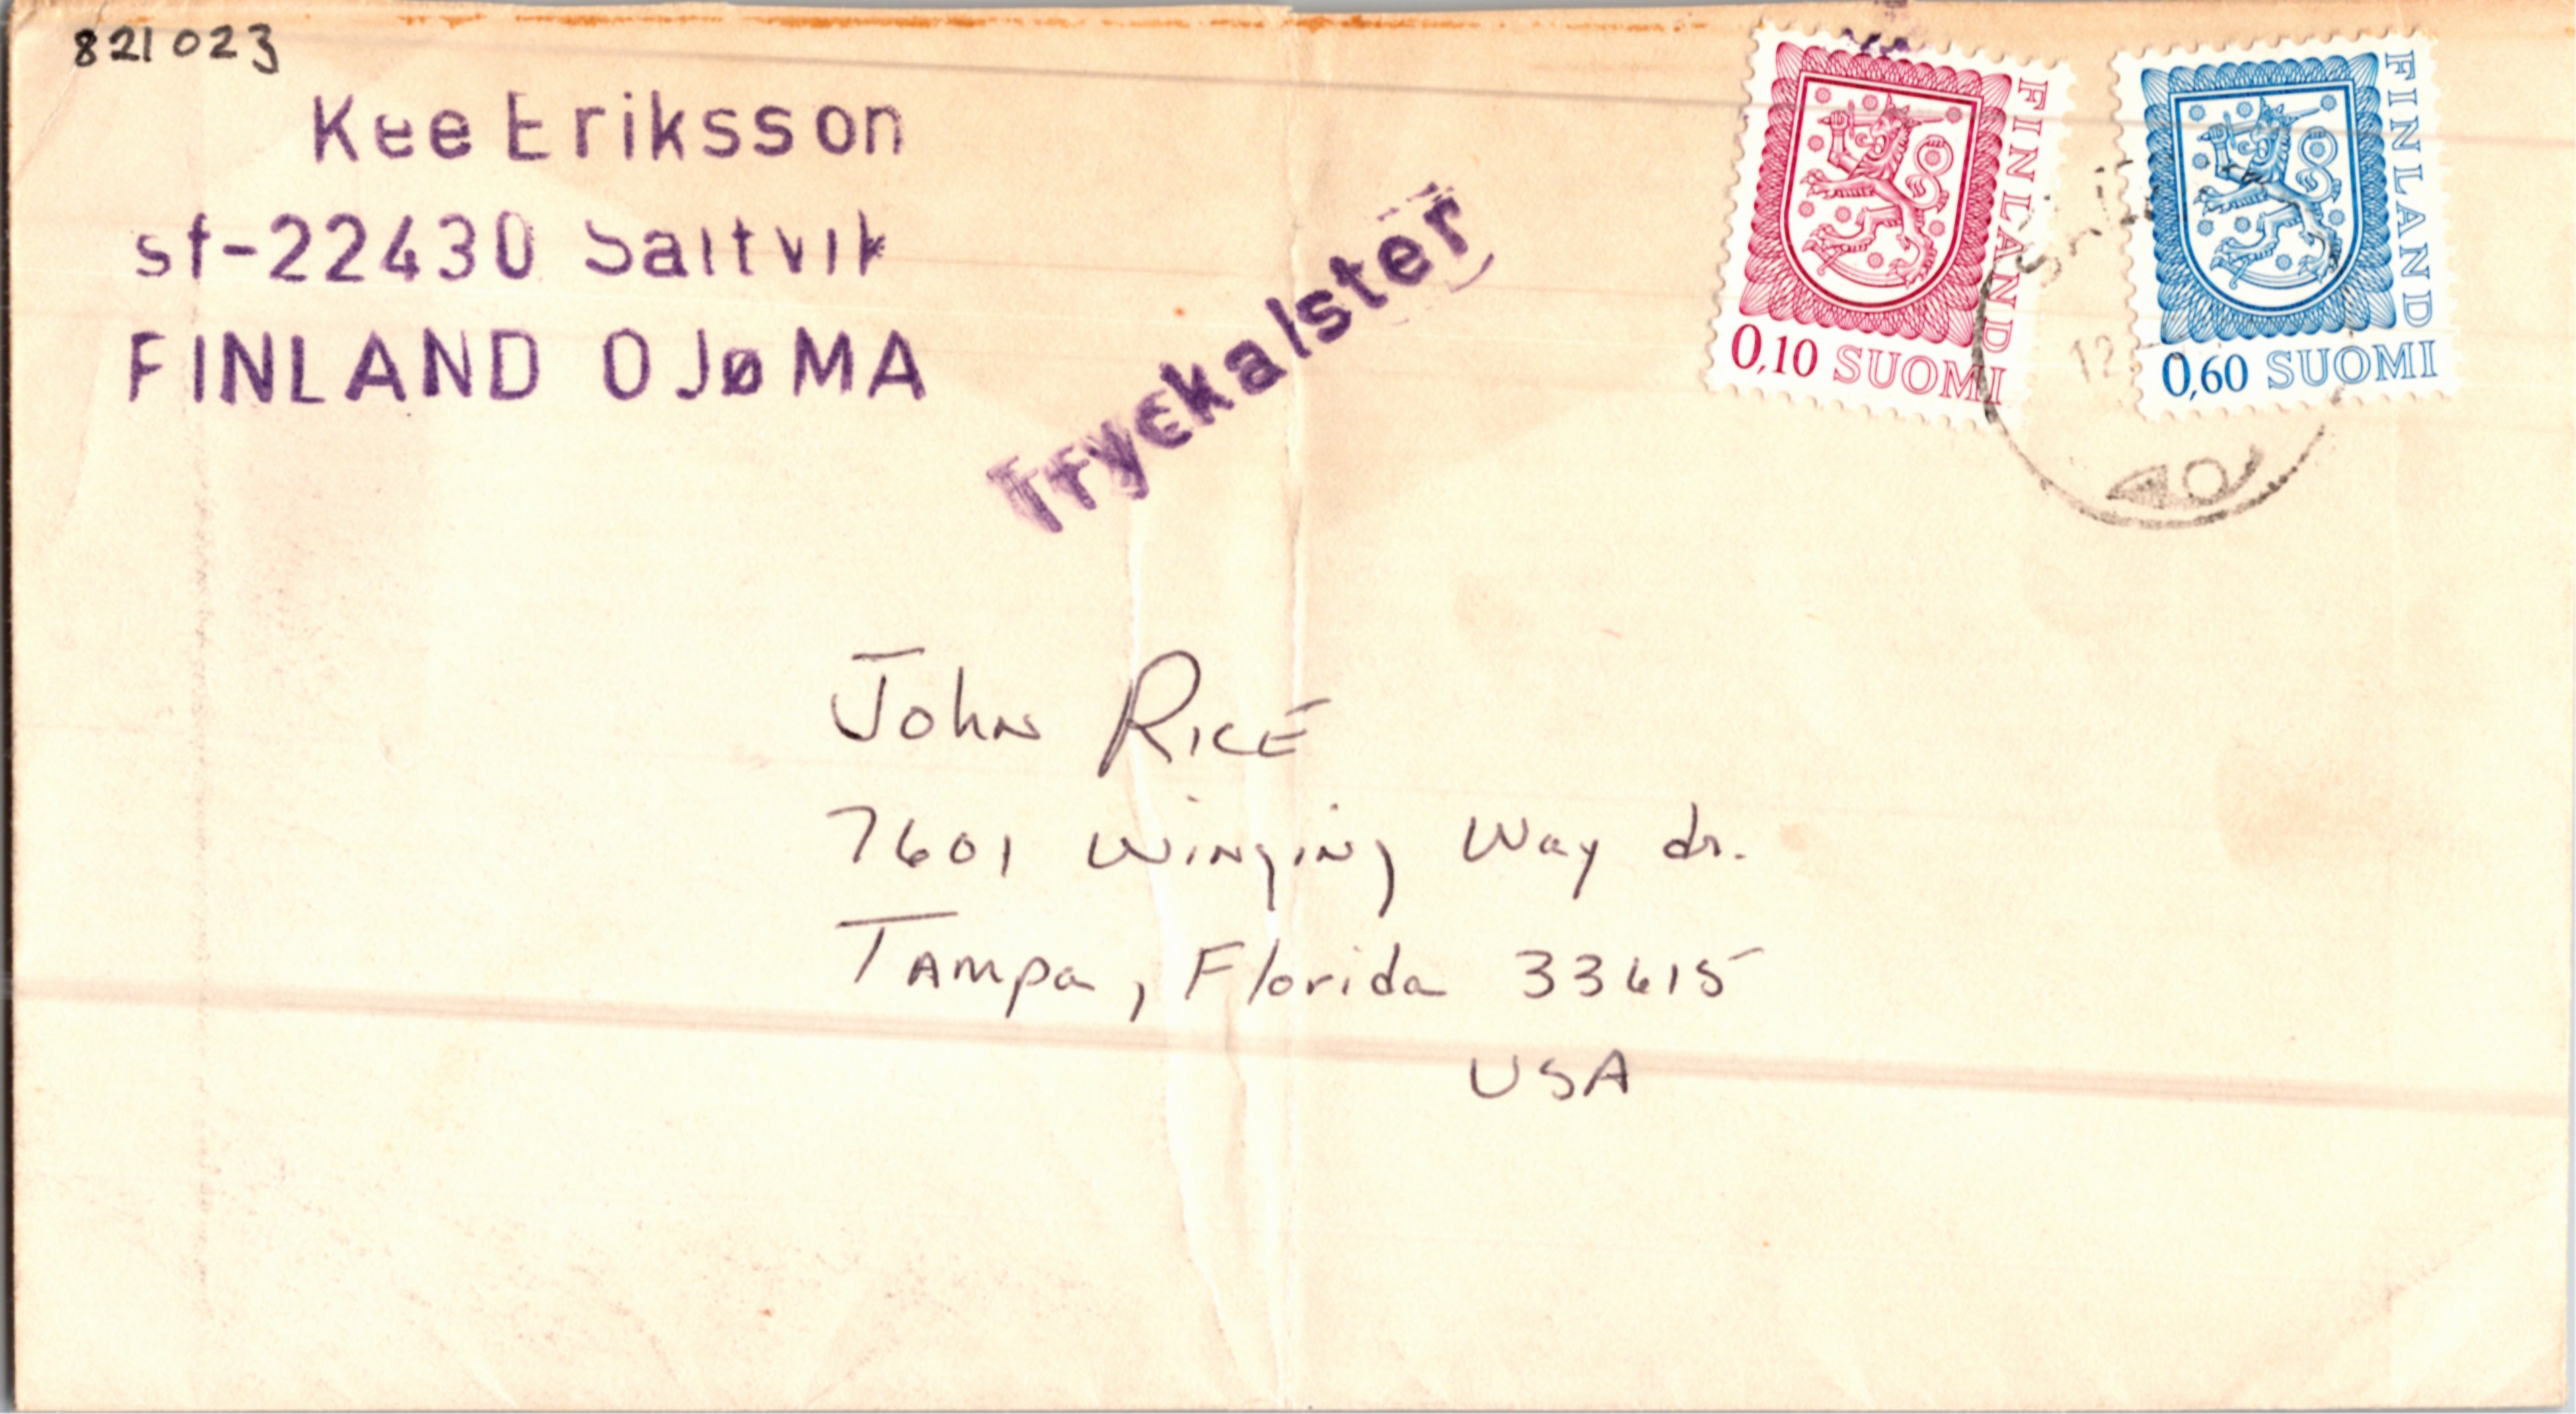 821023
Kee Eriksson
sf-22430 Saltvik
FINLAND OJøMA
Tryckalster
FINLAND
0,10 SUOMI
FINLAND
0,60 SUOMI
12
John RICE
7601 Winging Way dr.
TAmpa, Florida 33615
USA